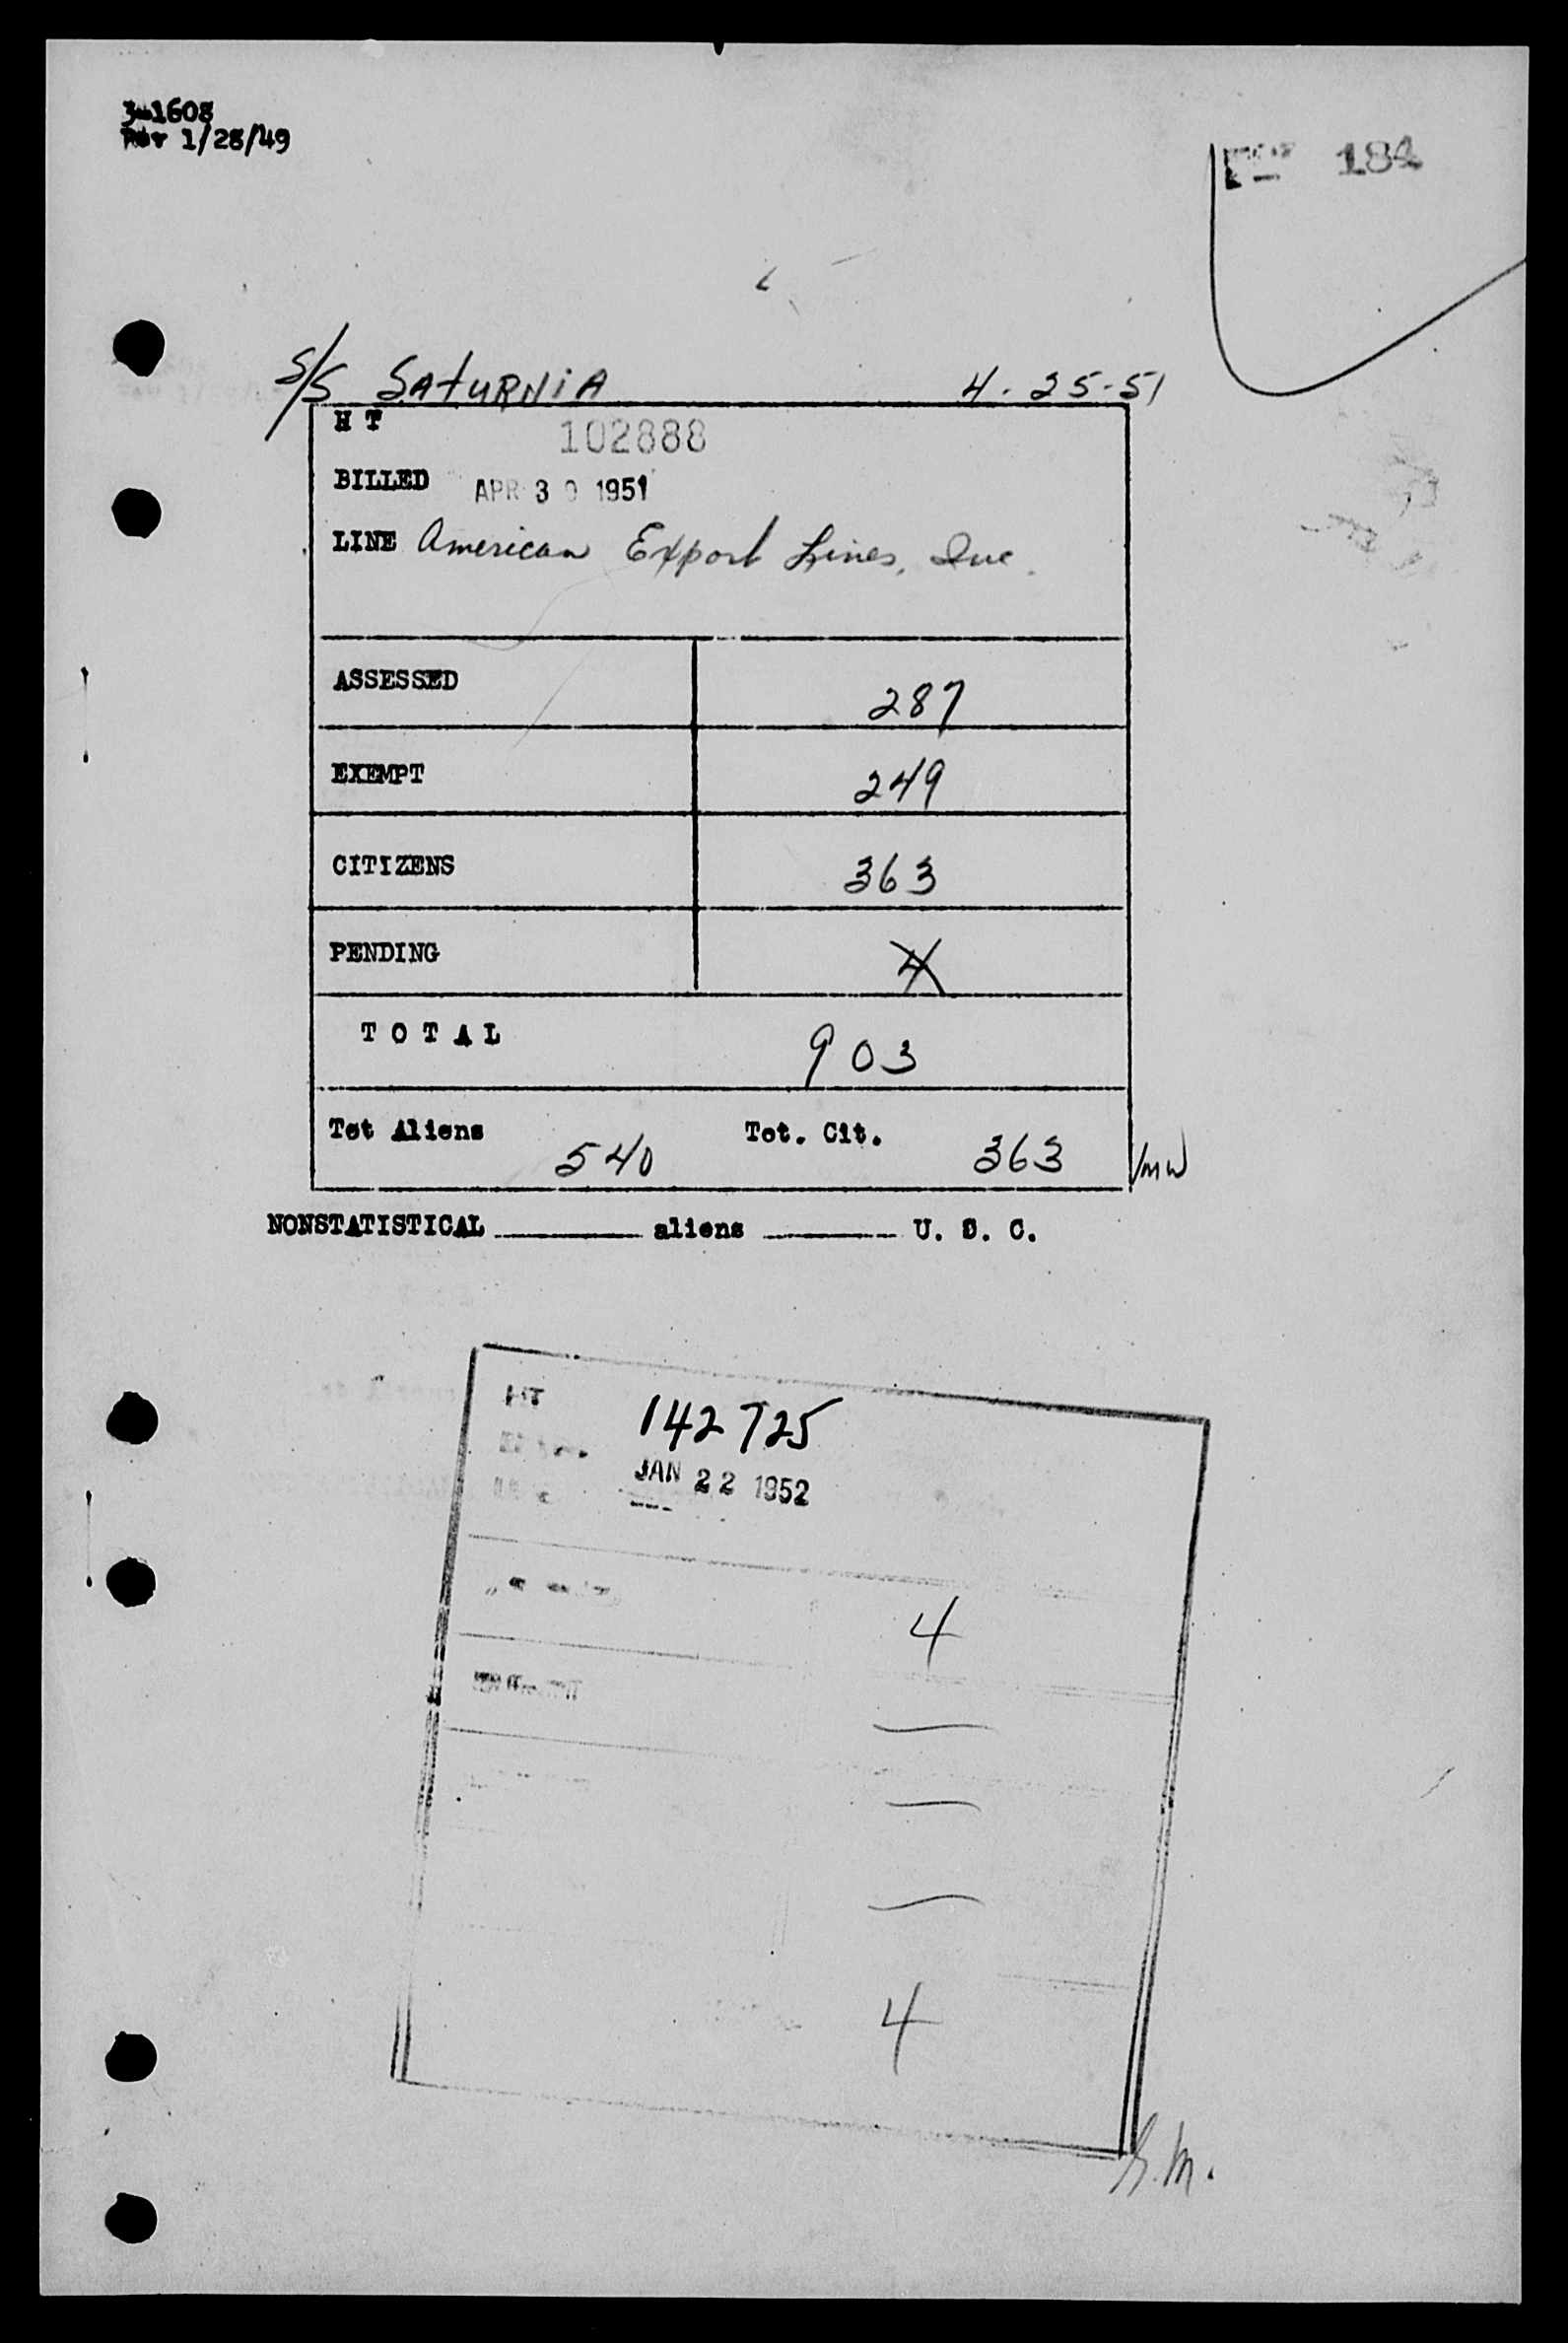 Rev 1/28/49
184
S/S SATURNIA 4-25-51
H T 102888
BILLED APR 30 1951
LINE American Export Lines, Inc.
ASSESSED 287
EXEMPT 249
CITIZENS 363
PENDING 4
T O T A L 903
Tot Aliens 540 Tot. Cit. 363 /mw
NONSTATISTICAL aliens U. S. C.
HT 142725
JAN 22 1952
4
4